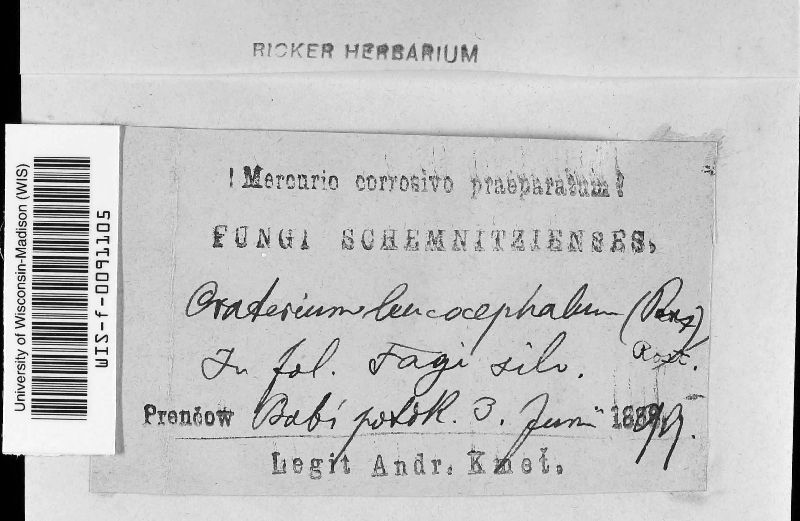 RICKER HERBARIUM
University of Wisconsin-Madison (WIS)
WIS-f-0091105
! Mercurio corrosivo praeparatum!
FUNGI SCHEMNITZIENSES.
Craterium leucocephalum (Pers)
Rost.
In fol. Fagi silv.
Prenčow Babí potok. 3. Junii
Legit Andr. Kmeł.